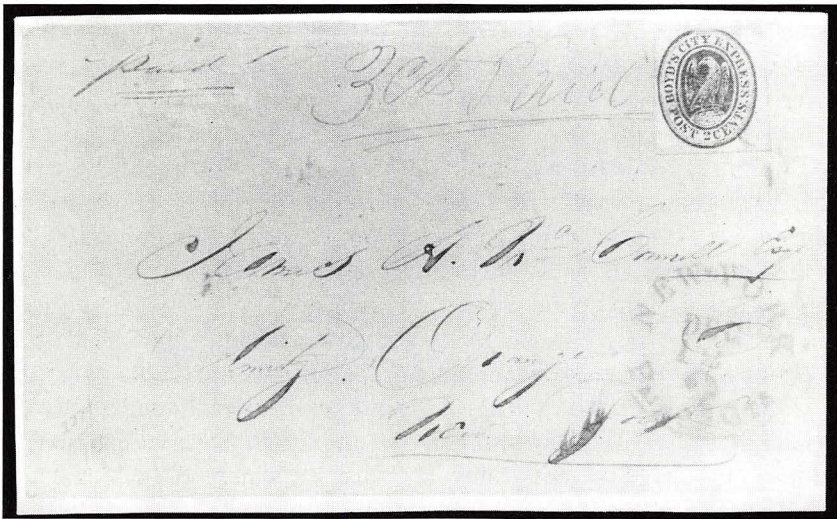 paid
3cts Paid
BOYD'S CITY EXPRESS.
POST 2 CENTS.
James A. Mc Connell Esq
Amity. Orange
New York
NEW-YORK